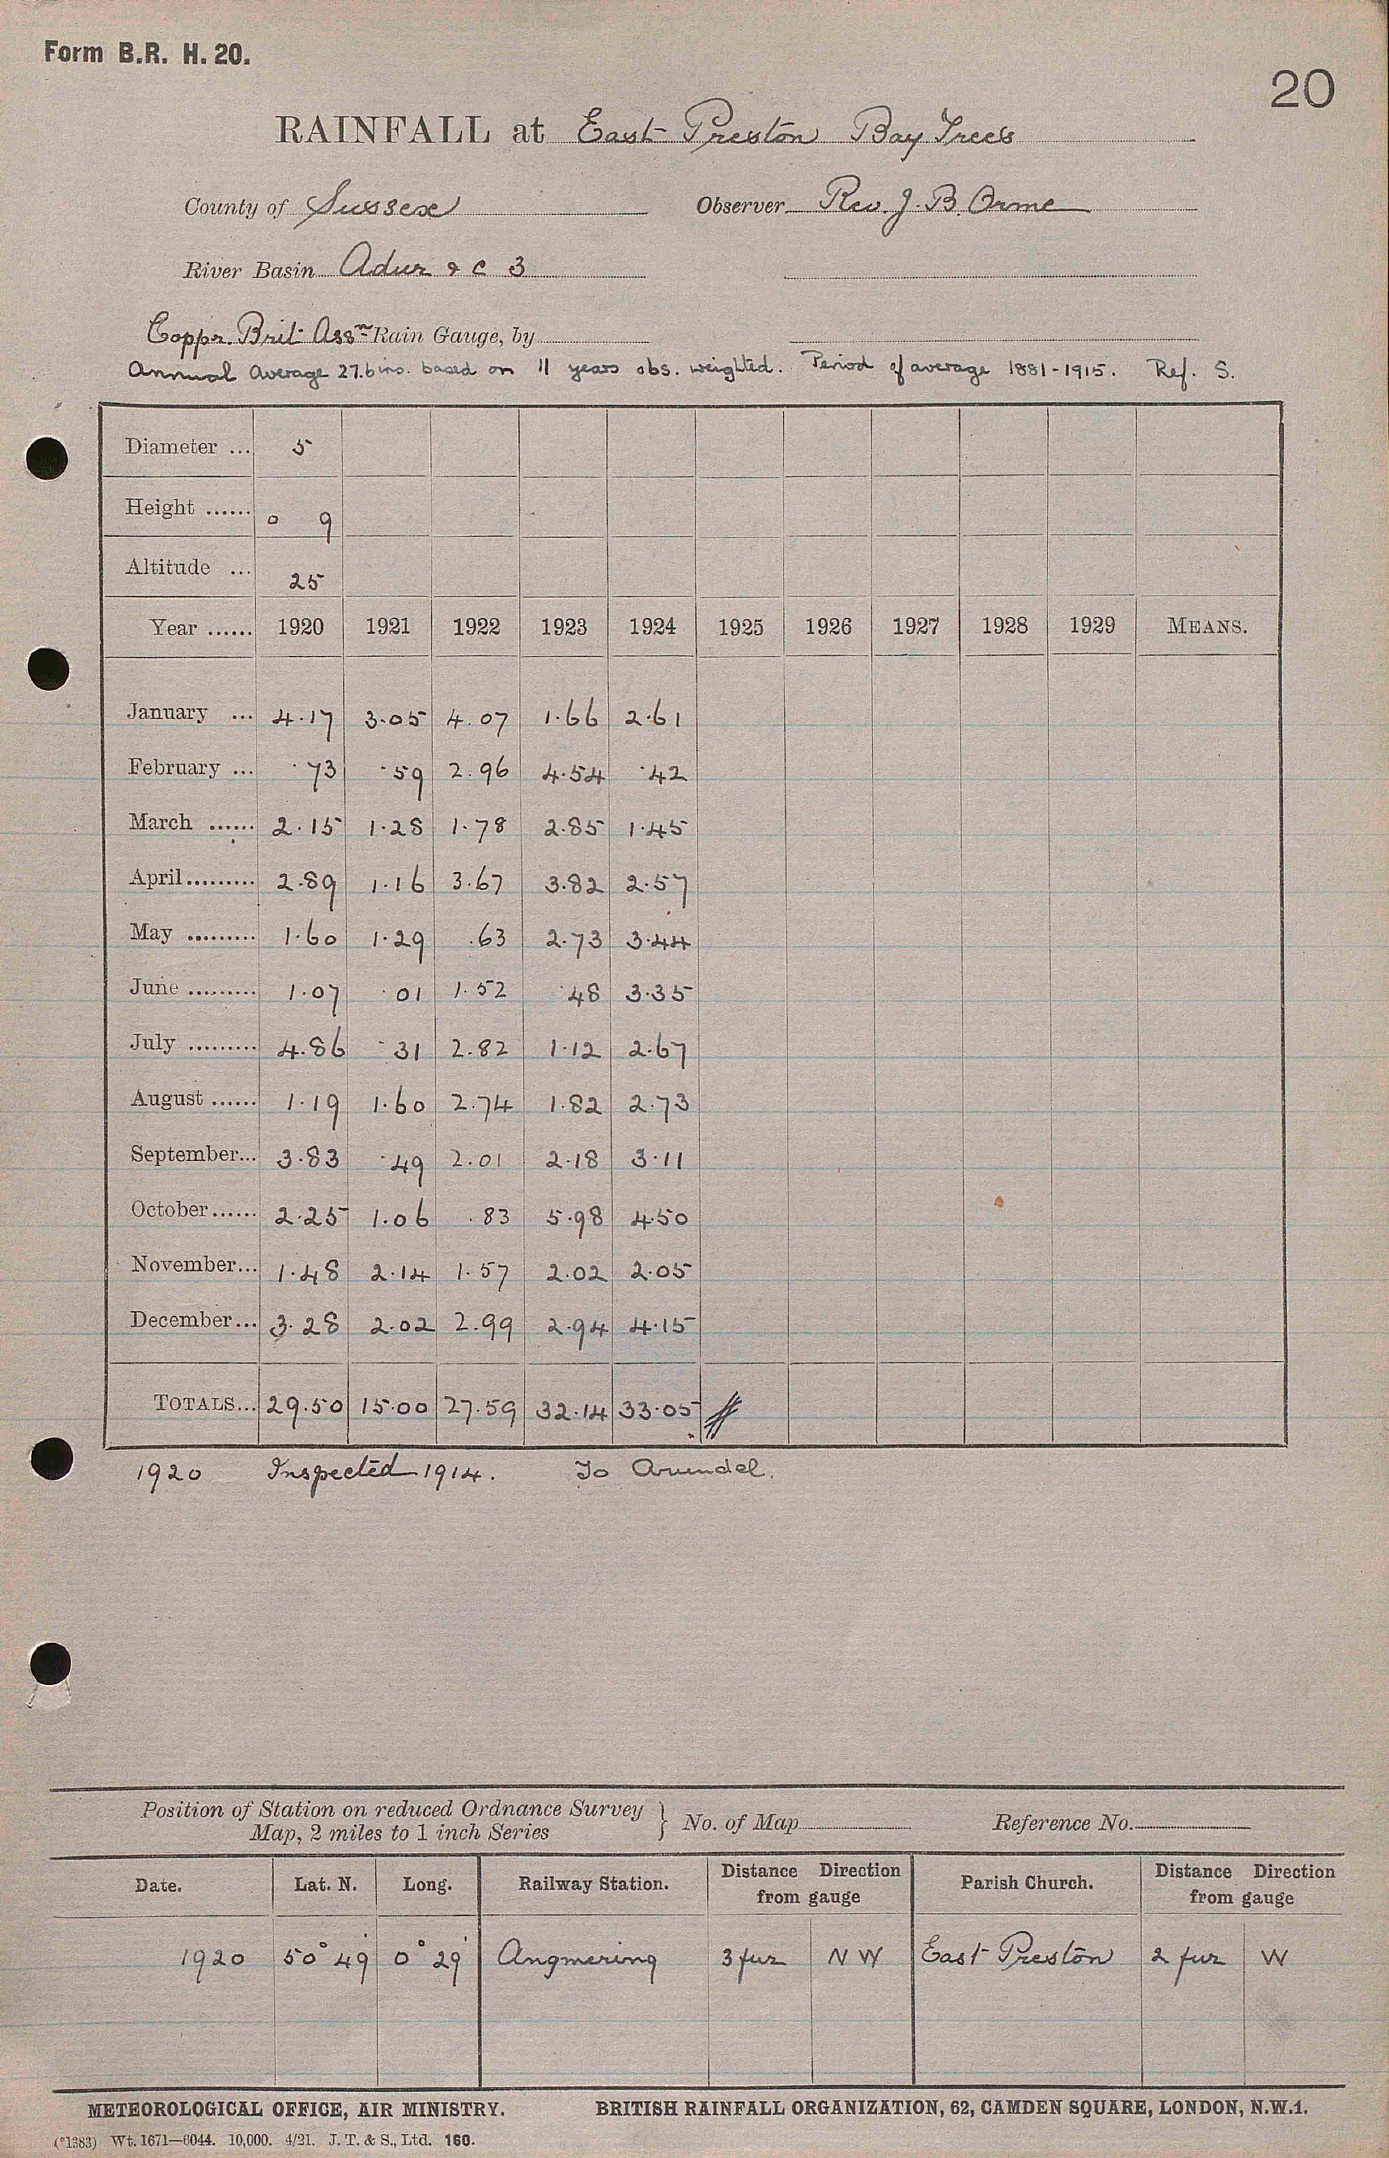 Form B.R. H. 20.
20
RAINFALL at East Preston Bay Trees
County of Sussex Observer Rev. J. B. Orme
River Basin Adur & c 3
Coppr. Brit. Assn Rain Gauge, by
Annual Average 27.6 ins. based on 11 years obs. weighted. Period of average 1881-1915. Ref. S.
Diameter ... 5
Height ...... 0 9
Altitude ... 25
Year ...... 1920 1921 1922 1923 1924 1925 1926 1927 1928 1929 MEANS.
January ... 4.17 3.05 4.07 1.66 2.61
February ... .73 .59 2.96 4.54 .42
March ...... 2.15 1.28 1.78 2.85 1.45
April......... 2.89 1.16 3.67 3.82 2.57
May ......... 1.60 1.29 .63 2.73 3.44
June ......... 1.07 .01 1.52 .48 3.35
July ......... 4.86 .31 2.82 1.12 2.67
August ...... 1.19 1.60 2.74 1.82 2.73
September... 3.83 .49 2.01 2.18 3.11
October...... 2.25 1.06 .83 5.98 4.50
November... 1.48 2.14 1.57 2.02 2.05
December... 3.28 2.02 2.99 2.94 4.15
TOTALS... 29.50 15.00 27.59 32.14 33.05
1920 Inspected 1914. To Arundel.
Position of Station on reduced Ordnance Survey
Map, 2 miles to 1 inch Series } No. of Map Reference No.
Date. Lat. N. Long. Railway Station. Distance Direction from gauge Parish Church. Distance Direction from gauge
1920 50° 49' 0° 29' Angmering 3 fur N W East Preston 2 fur W
METEOROLOGICAL OFFICE, AIR MINISTRY. BRITISH RAINFALL ORGANIZATION, 62, CAMDEN SQUARE, LONDON, N.W.1.
(*1383) Wt. 1671—6044. 10,000. 4/21. J. T. & S., Ltd. 160.